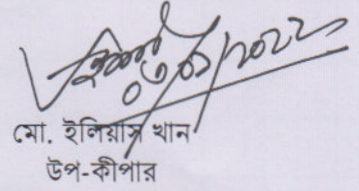 ০৩/০১/২০২২
মো. ইলিয়াস খান
উপ-কীপার